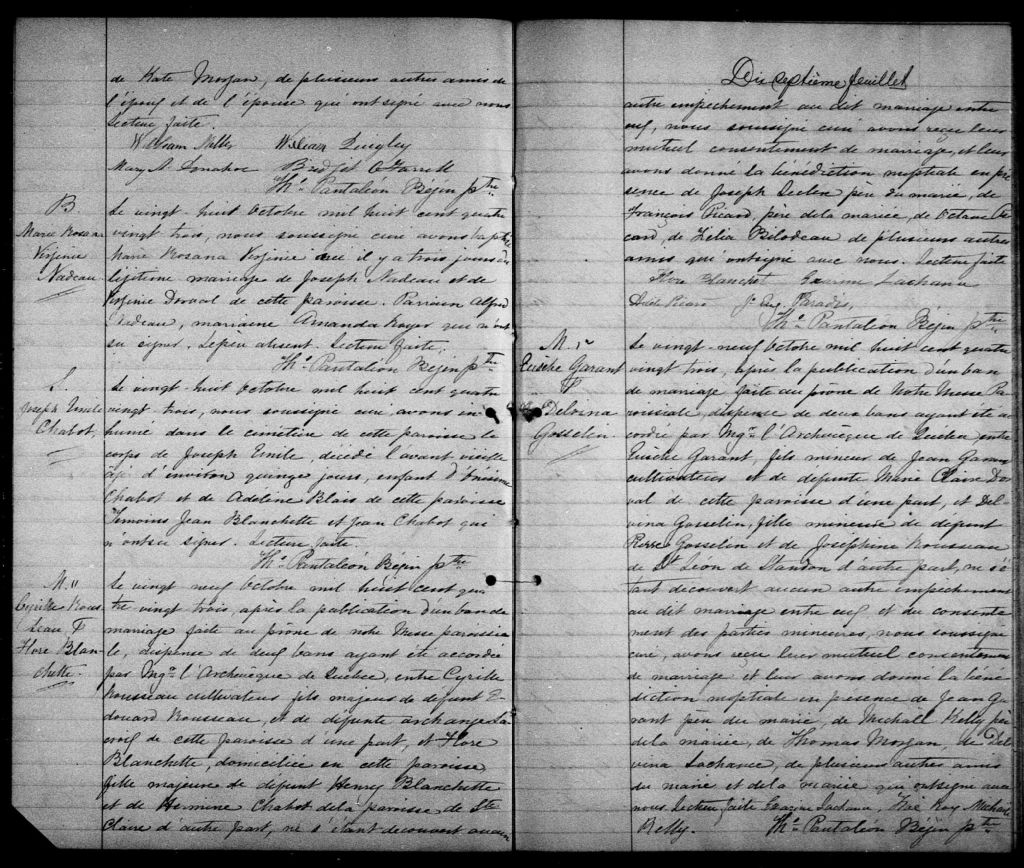 de Kate Morgan, de plusieurs autres amis de
l'époux et de l'épouse qui ont signé avec nous
Lecture faite.
William Quigley
Mary A. Donahoe Bridget O'Farrell
Ths Pantaléon Bégin ptre
B
Marie Rosana
Virginie
Nadeau
Le vingt-huit Octobre mil huit cent quatre
vingt trois, nous soussigné curé avons baptisé
Marie Rosana Virginie née il y a trois jours du
légitime mariage de Joseph Nadeau et de
Virginie Dorval de cette paroisse. Parrain Alfred
Nadeau, marraine Amanda Royer qui n'ont
su signer. Le père absent. Lecture faite.
Ths Pantaléon Bégin ptre
S.
Joseph Emile
Chabot.
Le vingt-huit Octobre mil huit cent quatre
vingt trois, nous soussigné curé avons in-
humé dans le cimetière de cette paroisse le
corps de Joseph Emile, décédé l'avant veille
âgé d'environ quinze jours, enfant d'Onésime
Chabot et de Adeline Blais de cette paroisse
Témoins Jean Blanchette et Jean Chabot qui
n'ont su signer. Lecture faite.
Ths Pantaléon Bégin ptre
M. 11
Cyrille Rous-
seau &
Flore Blan-
chette.
Le vingt neuf Octobre mil huit cent qua
tre vingt trois, après la publication d'un ban de
mariage faite au prône de notre Messe paroissia
le, dispense de deux bans ayant été accordée
par Mgr l'Archevêque de Québec, entre Cyrille
Rousseau cultivateur fils majeur de défunt E-
douard Rousseau, et de défunte Archange
de cette paroisse d'une part, et Flore
Blanchette, domiciliée en cette paroisse
fille majeure de défunt Henry Blanchette
et de Hermine Chabot de la paroisse de Ste
Claire d'autre part, ne s'étant découvert aucun
Dix septième feuillet
autre empêchement au dit mariage entre
eux, nous soussigné curé avons reçu leur
mutuel consentement de mariage, et leur
avons donné la bénédiction nuptiale en pré
sence de Joseph Leclerc père du marié, de
François Picard, père de la mariée, de Octave Pi
card, de Zélia Bilodeau de plusieurs autres
amis qui ont signé avec nous. Lecture faite
Flore Blanchet Lachance
Picard J. Aug. Paradis,
Ths Pantaléon Bégin ptre
M. 12
Eusèbe Garant
&
Delvina
Gosselin.
Le vingt-neuf Octobre mil huit cent quatre
vingt trois, après la publication d'un ban
de mariage faite au prône de Notre Messe Pa
roissiale, dispense de deux bans ayant été ac
cordée par Mgr l'Archevêque de Québec, entre
Eusèbe Garant, fils mineur de Jean Garant
cultivateur et de défunte Marie Claire Dor
val de cette paroisse d'une part, et Del-
vina Gosselin, fille mineure de défunt
Pierre Gosselin et de Joséphine Rousseau
de St Léon de Standon d'autre part, ne s'é
tant découvert aucun autre empêchement
au dit mariage entre eux et du consente
ment des parties mineures, nous soussigné
curé, avons reçu leur mutuel consentement
de mariage et leur avons donné la béné
diction nuptiale en présence de Jean Ga
rant père du marié, de Michall Kelly père
de la mariée, de Thomas Morgan, de Del
vina Lachance, de plusieurs autres amis
du marié et de la mariée qui ont signé avec
nous. Lecture faite Lachance, Roy Michael
Kelly. Ths Pantaléon Bégin ptre